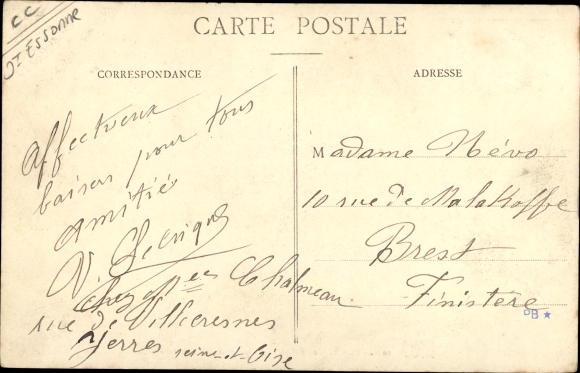 CC
Dt ESSONNE
CARTE POSTALE
CORRESPONDANCE
Affectueux
baisers pour tous
amitié
V.
chez Mee Chalmeau
rue de Villecresnes
Yerres seine-et-Oise
ADRESSE
Madame Névo
10 rue de Malakoffe
Brest
Finistère
PB ★